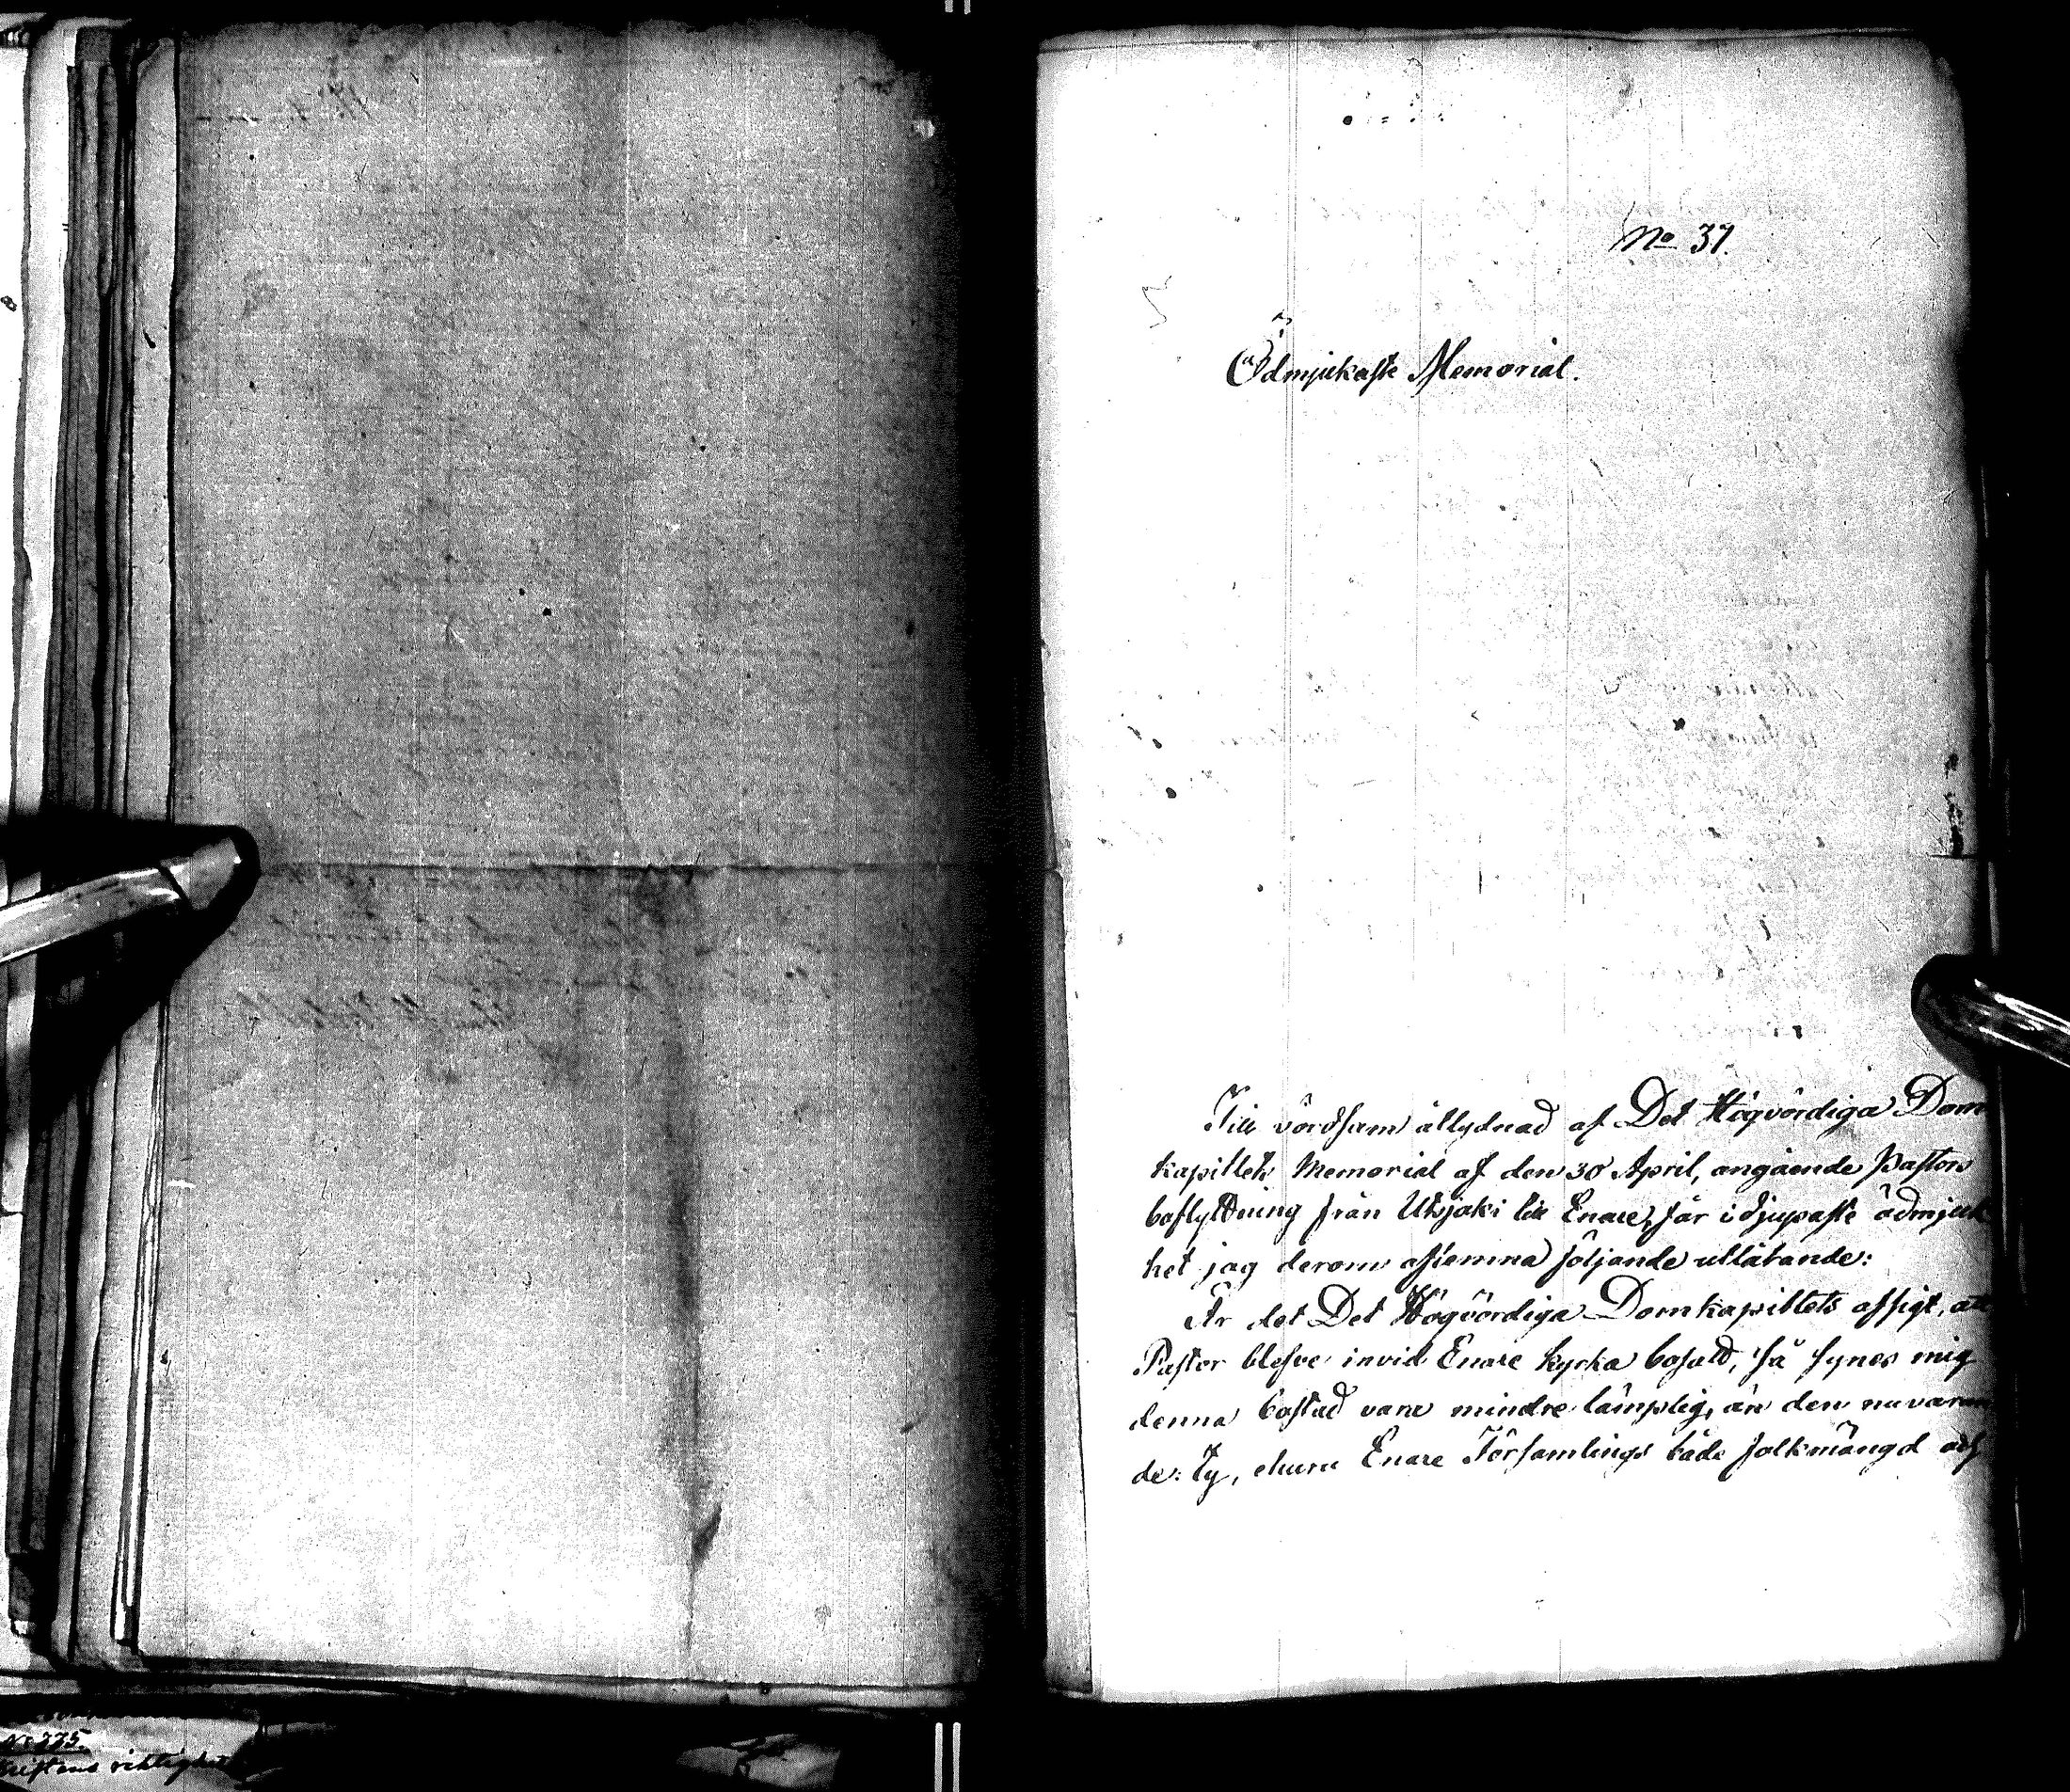 No 37.
Ödmjukaste Memorial.
Till vördsam åtlydnad af Det Högvördiga Dom
kapitlets Memorial af den 30 April, angående Pastors
boflyttning från Utsjoki till Enare, får i djupaste ödmjuk
het jag derom aflemna följande utlåtande:
Är det Det Högvördiga Domkapitlets afsigt, att
Pastor blefve invid Enare kyrka bosatt, så synes mig
denna bostad vara mindre lämplig, än den nuvaran
de: Ty, ehuru Enare Församlings både folkmängd och
No 775.
riktighet